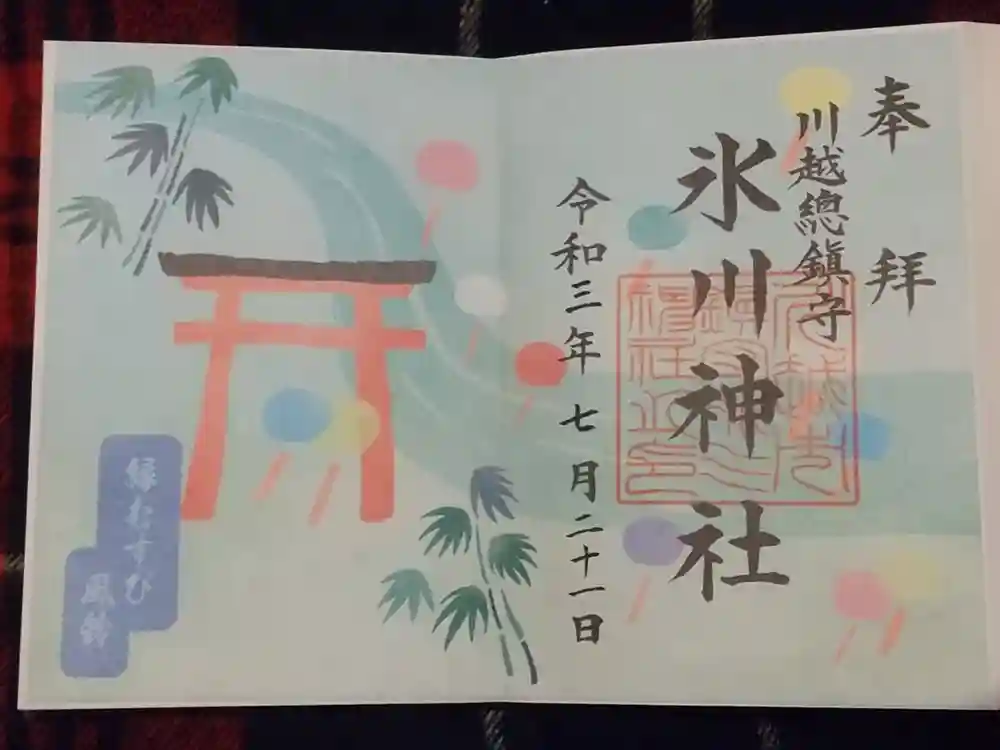 奉拝
川越總鎮守
氷川神社
令和三年七月二十一日
縁むすび
風鈴